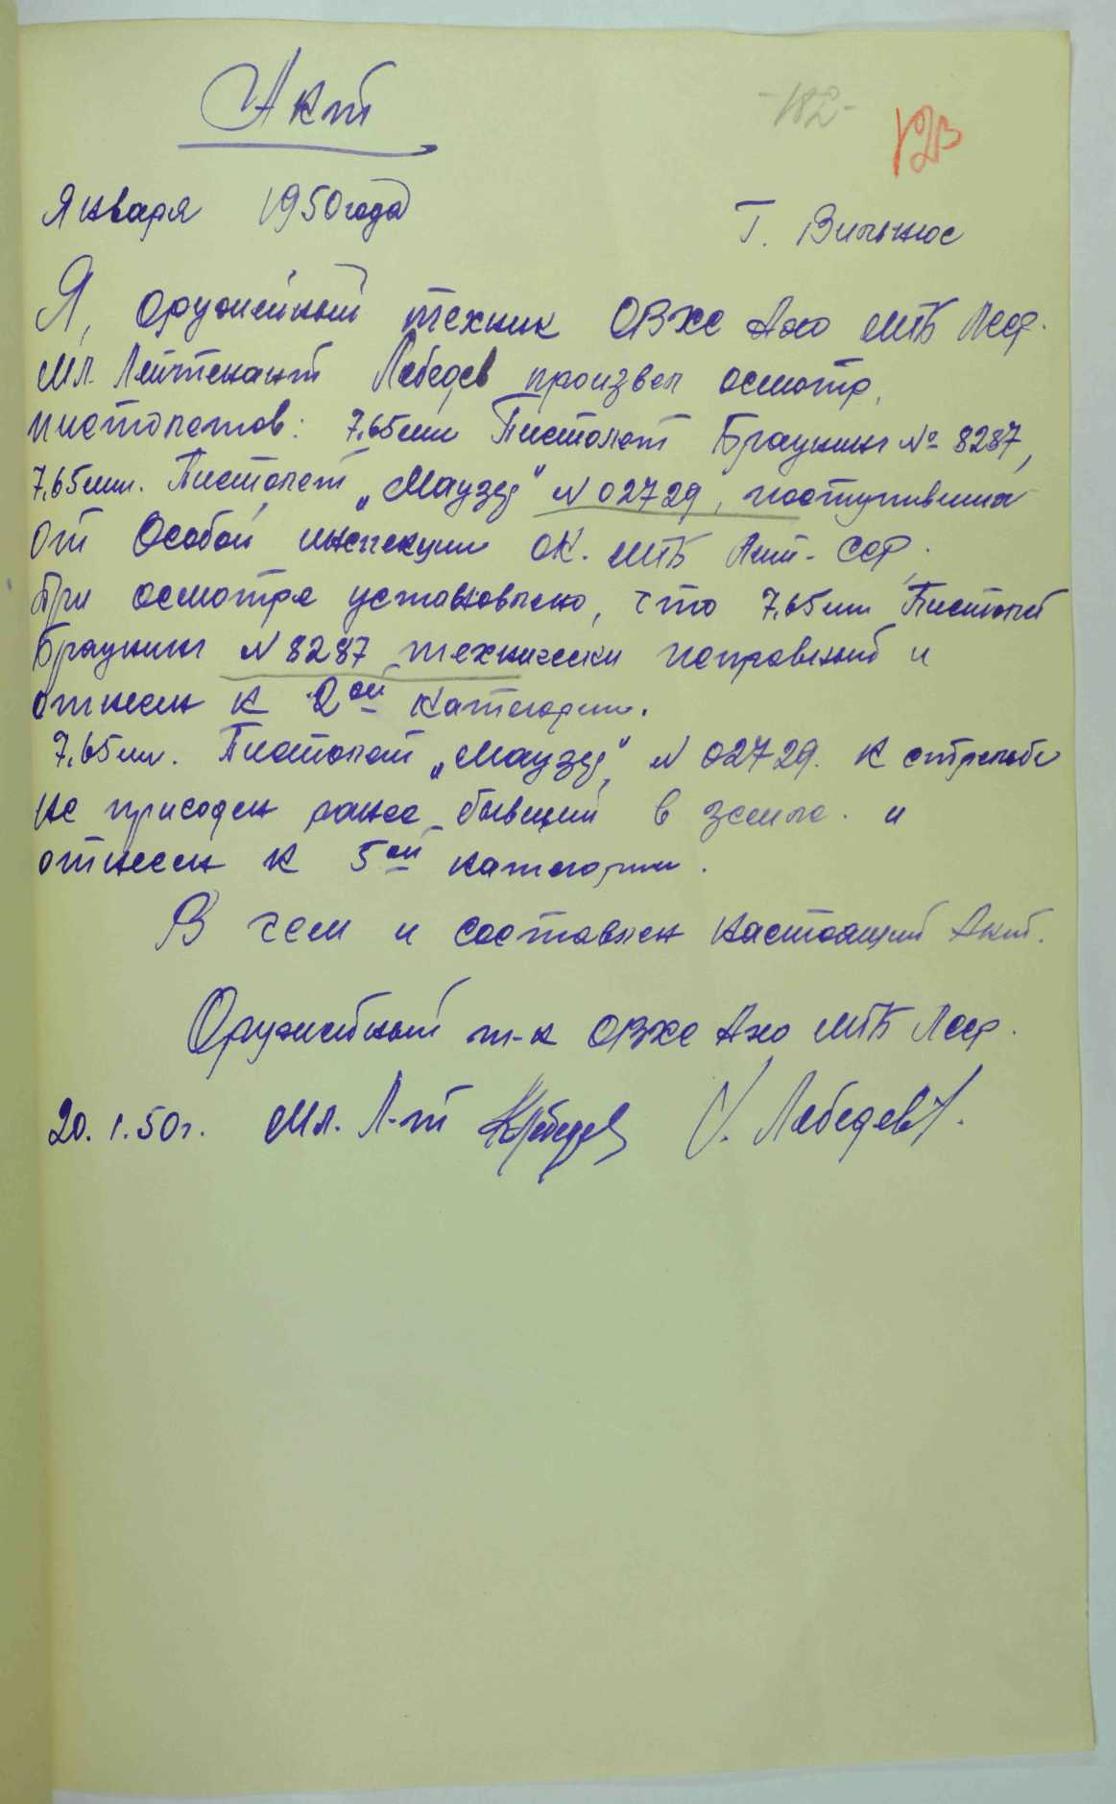 Акт
-182-
123
Января 1950 года
Г. Вильнюс
Я, оружейный техник ОВХС АХО МГБ Лсср.
Мл. Лейтенант Лебедев произвел осмотр,
пистолетов: 7,65мм Пистолет Браунинг № 8287,
7,65мм. Пистолет „Маузер" N 02729, поступивших
от Особой инспекции ОК. МГБ Лит. ССР.
При осмотре установлено, что 7,65мм Пистолет
Браунинг N 8287 технически исправный и
отнесен к 2ой категории.
7,65мм. Пистолет „Маузер" N 02729. к стрельбе
не пригоден ранее бывший в земле. и
отнесен к 5ой категории.
В чем и составлен настоящий Акт.
Оружейный т-к ОВХС АХО МГБ Лсср.
20.1.50г. Мл. Л-т Лебедев